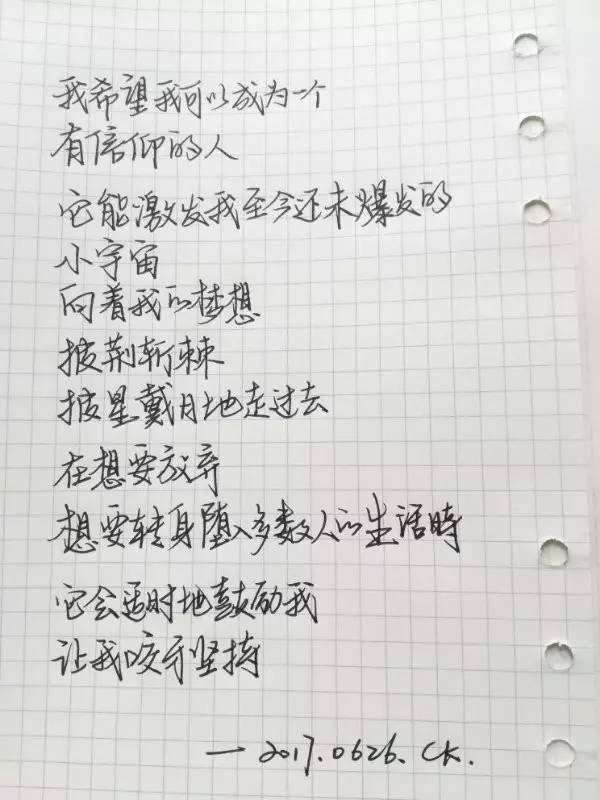 我希望我可以成为一个
有信仰的人
它能激发我至今还未爆发的
小宇宙
向着我的梦想
披荆斩棘
披星戴月地走过去
在想要放弃
想要转身堕入多数人的生活時
它会适时地鼓励我
让我咬牙坚持
—2017.0626.CK.